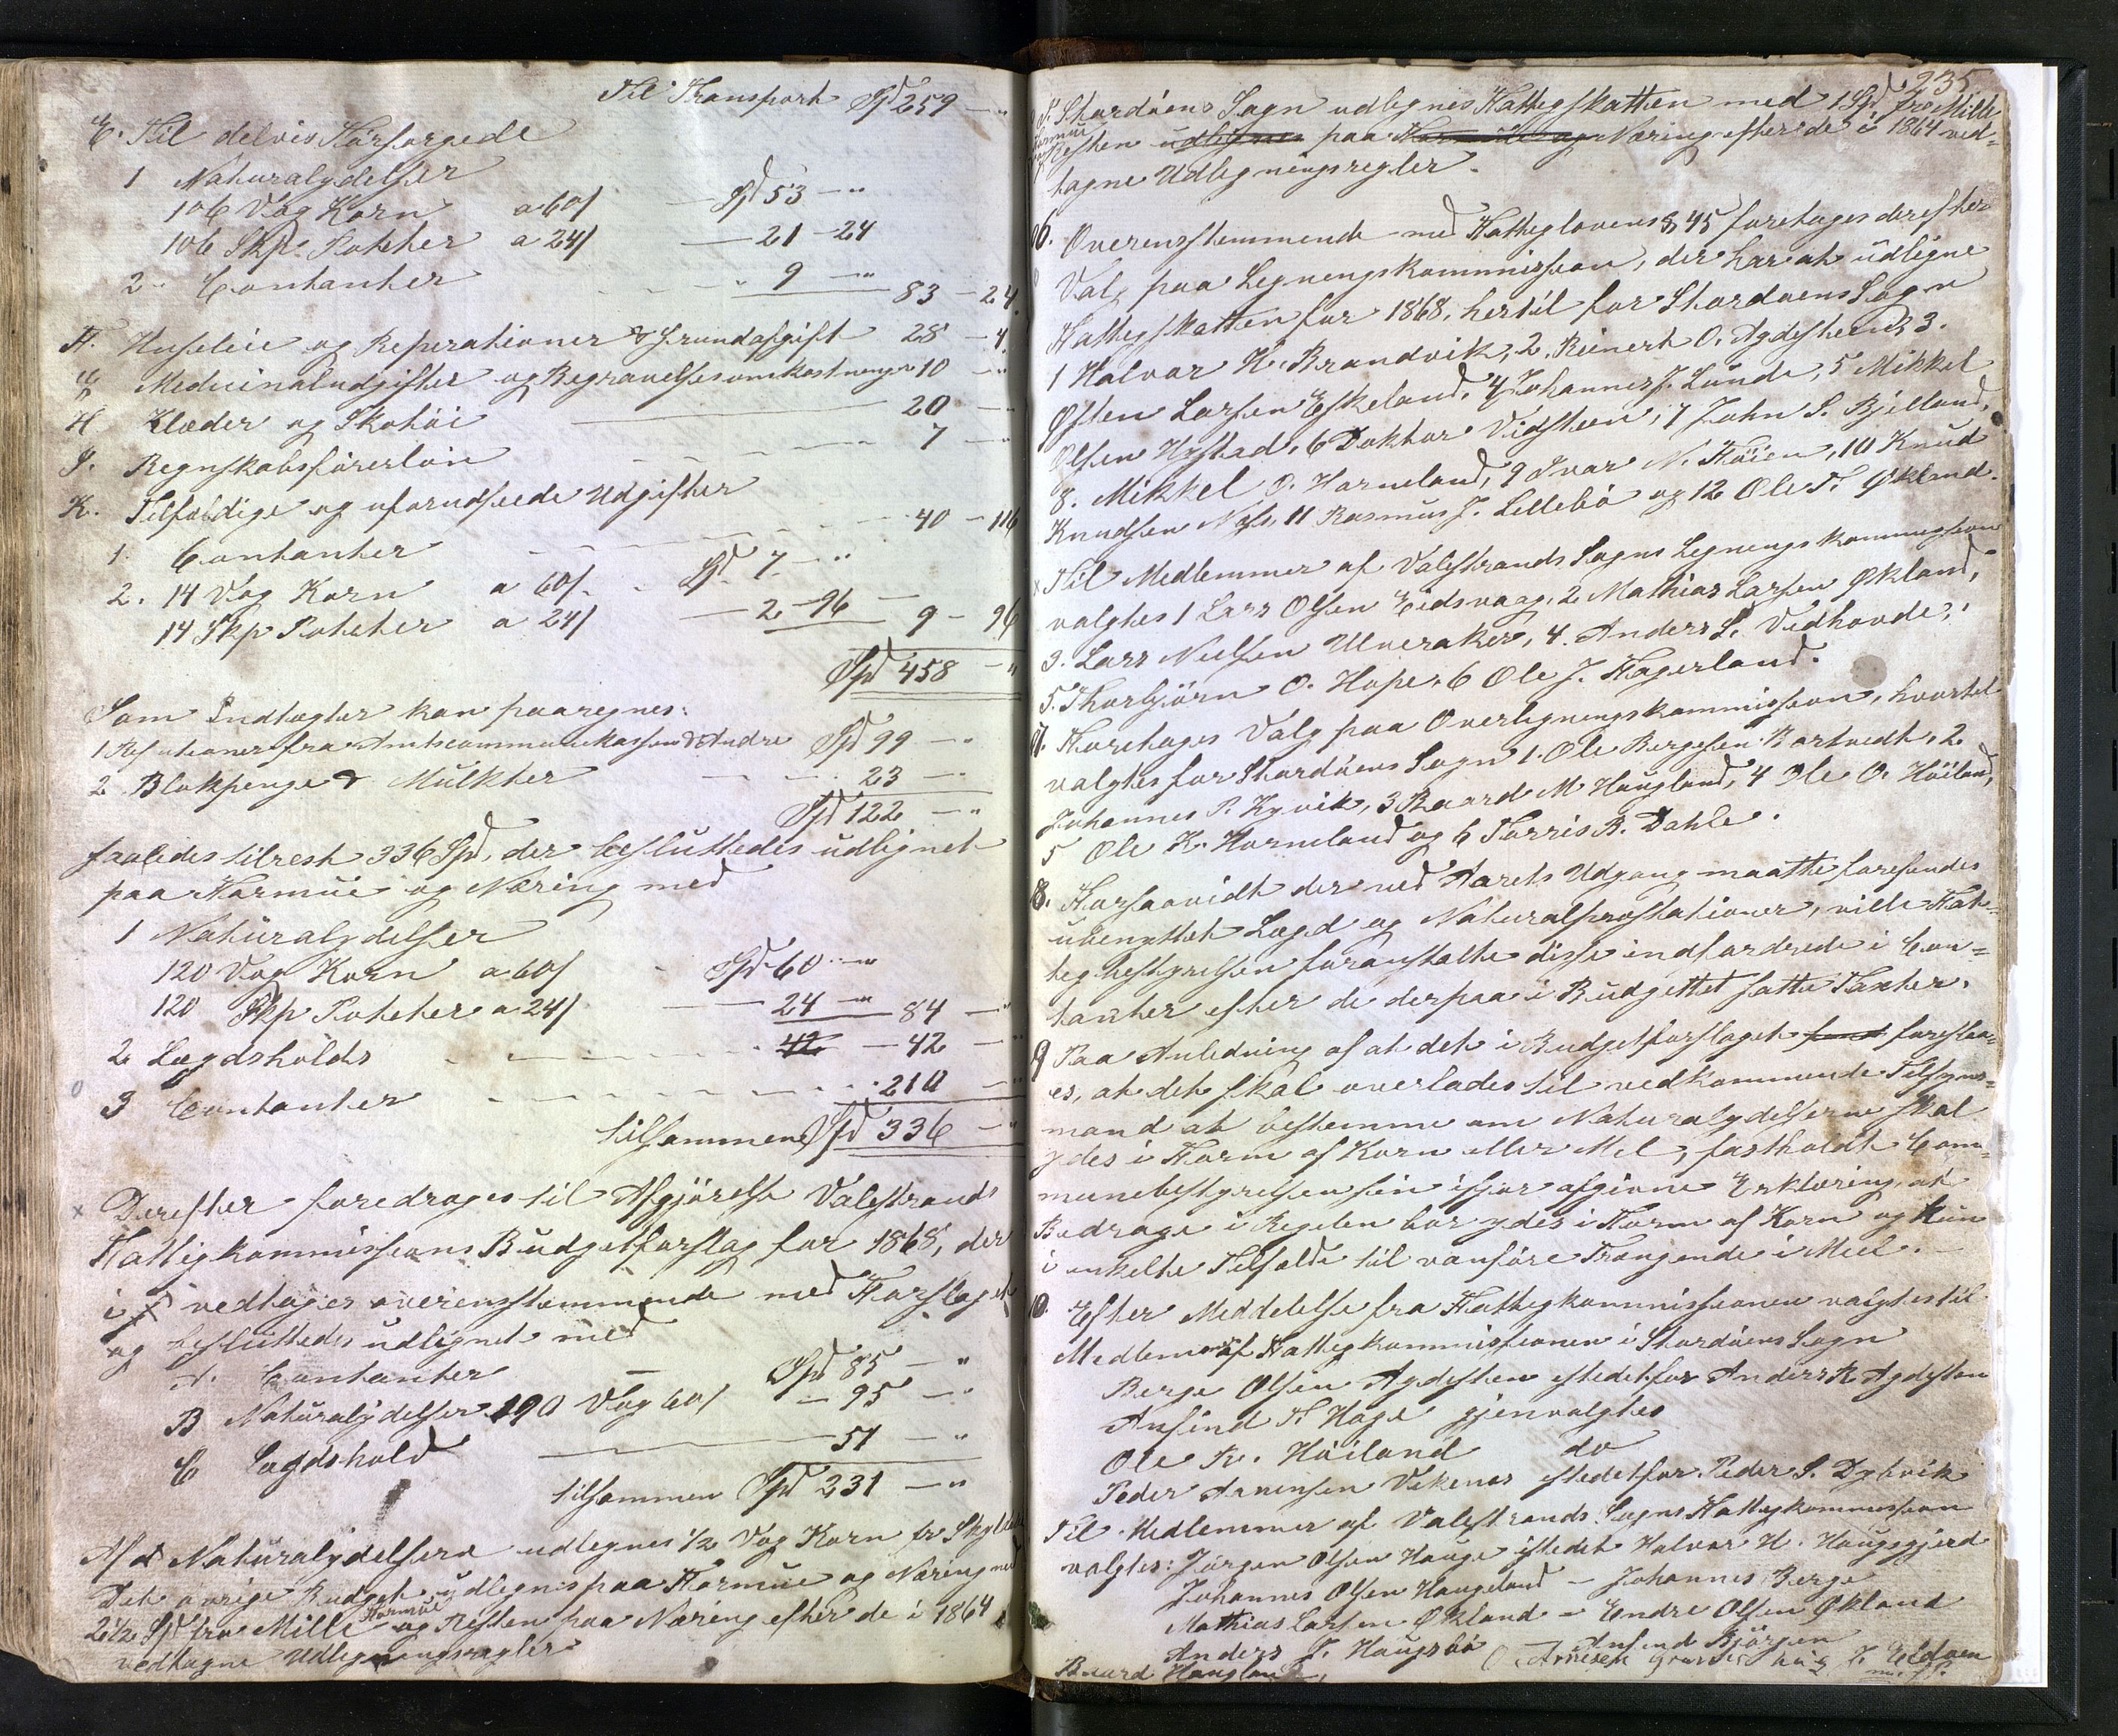 Til Transport Spd 259 — "
E. Til delvis Forsørgede
1 Naturalydelser
106 Vog Korn a 60/ — Spd 53 — "
106 Skp. Poteter a 24/ — 21 - 24
2. Contanter — 9 — " 83 - 24
F. Huusleie og Reperationer & Grundafgift 28 - 4
G Medicinaludgifter og Begravelsesomkostninger 10 - "
H Klæder og Skotøi 20 - "
J. Regnskabsførerløn 7 - "
K. Tilfældige og uforudseede Udgifter
40 - 116
1. Contanter Spd 7 - "
2. 14 Vog Korn a 60/
14 Skp Poteter a 24/ — 2 - 96 — 9 - 96
Spd 458 - "
Som Indtægter kan paaregnes:
1 Refusioner fra Amtscommunekassen & Andre Spd 99 - "
2 Blokpenge & Mulkter 23 - "
Spd 122 - "
saaledes tilrest 336 Spd, der besluttedes udlignet
paa Formue og Næring med
1 Naturalydelser
120 Vog Korn a 60/ Spd 60 - "
120 Skp Poteter a 24/ — 24 - " — 84 - "
2 Lægdsholds 42 — 42 - "
3 Contanter 210 - "
tilsammen Spd 336 - "
x Derefter foredroges til Afgjørelse Valestrands
Fattigkommissions Budgetforslag for 1868, der
i vedtages overensstemmende med Forslaget
og besluttedes udlignet med
A. Contanter — Spd 85 - "
B Naturalydelser 190 Vog 60/ — 95 - "
C Lægdshold — 51 - "
tilsammen Spd 231 - "
Af Naturalydelserne udlegnes 1/2 Vog Korn pr Skylddaler
Det øvrige Budget udlegnes paa Formue og Næring med
2 1/2 Spd pro Mille Formue og Resten paa Næring efter de i 1864
vedtagne Udlegningsregler
235
I Stordøens Sogn udlignes Fattigskatten med 1 Spd pro Mille
Formue
Resten udlignes paa Formue og Næring efter de i 1864 ved-
tagne Udlegningsregler.
66. Overensstemmende med Fattiglovens § 45 foretages derefter
Valg paa Legningskommission, der har at udligne
Fattigskatten for 1868, hertil for Stordøens Sogn
1 Halvor H. Brandvik, 2. Reinert O. Agdesteen, 3.
Østen Larsen Eskeland, 4 Johannes J. Lunde, 5 Mikkel
Olsen Hystad, 6 Doktor Vidsteen, 7 John S. Bjelland,
8. Mikkel O. Horneland, 9 Ivar N. Føien, 10 Knud
Knudsen Næs, 11 Rasmus J. Lillebø og 12 Ole T. Økland.
x Til Medlemmer af Valestrands Sogns Legningskommission
valgtes 1 Lars Olsen Eidsvaag, 2 Mathias Larsen Økland,
3. Lars Nielsen Ulveraker, 4. Anders L. Vedhovde,
5. Thorbjørn O. Hope, 6 Ole J. Fagerland.
67. Foretages Valg paa Overligningskommission, hvortil
valgtes for Stordøens Sogn 1. Ole Bergesen Bortvedt, 2
Johannes P. Kyvik, 3 Baard M Haugland, 4 Ole O. Høiland,
5 Ole K. Horneland og 6 Torris B. Dahle.
68. Forsaavidt der ved Aarets Udgang maatte forefindes
ubenyttet Lægd og Naturalprestationer, ville Fat-
tigbestyrelsen foranstalte disse indfordrede i Con-
tanter efter de derpaa i Budgettet satte Taxter.
69 Paa Anledning af at det i Budgetforslaget foreslaa-
es, at det skal overlades til vedkommende Tilsyns-
mand at bestemme om Naturalydelserne skal
ydes i Form af Korn eller Mel, fastholdt Com-
munebestyrelsen sin ifjor afgivne Erklæring, at
Bidrage i Regelen bør ydes i Form af Korn og kun
i enkelte Tilfælde til vanføre Trængende i Meel.
70. Efter Meddelelse fra Fattigkommissionen valgtes til
Medlemmer af Fattigkommissionen i Stordøens Sogn
Berge Olsen Agdesteen istedetfor Anders R. Agdesten
Ansind T Hage gjenvalgtes
Ole K. Høiland do
Peder Arnesen Vikenes istedetfor Peder S. Dybvik
Til Medlemmer af Valestrands Sogns Fattigkommission
valgtes: Jørgen Olsen Hauge istedet Halvor H. Haugsgjerd
Johannes Olsen Haugeland — Johannes Berge
Mathias Larsen Økland — Endre Olsen Økland
Anders J. Haugsbø — Ansind Bjørgen
Baard Haugland, O. Arnesen